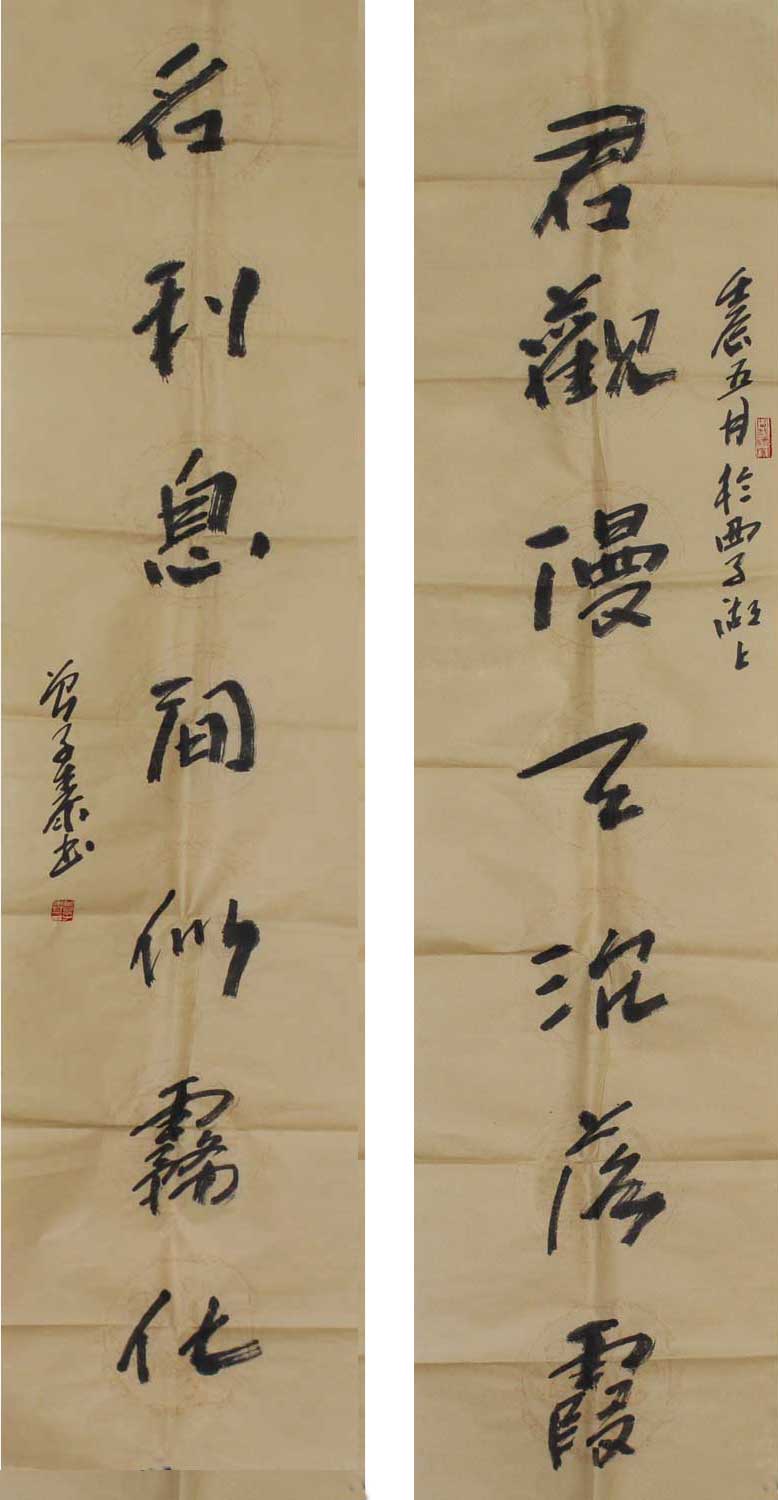 君觀漫天沉落霞
壬辰五月於西子湖上
名利息間似霧化
曾子泰书